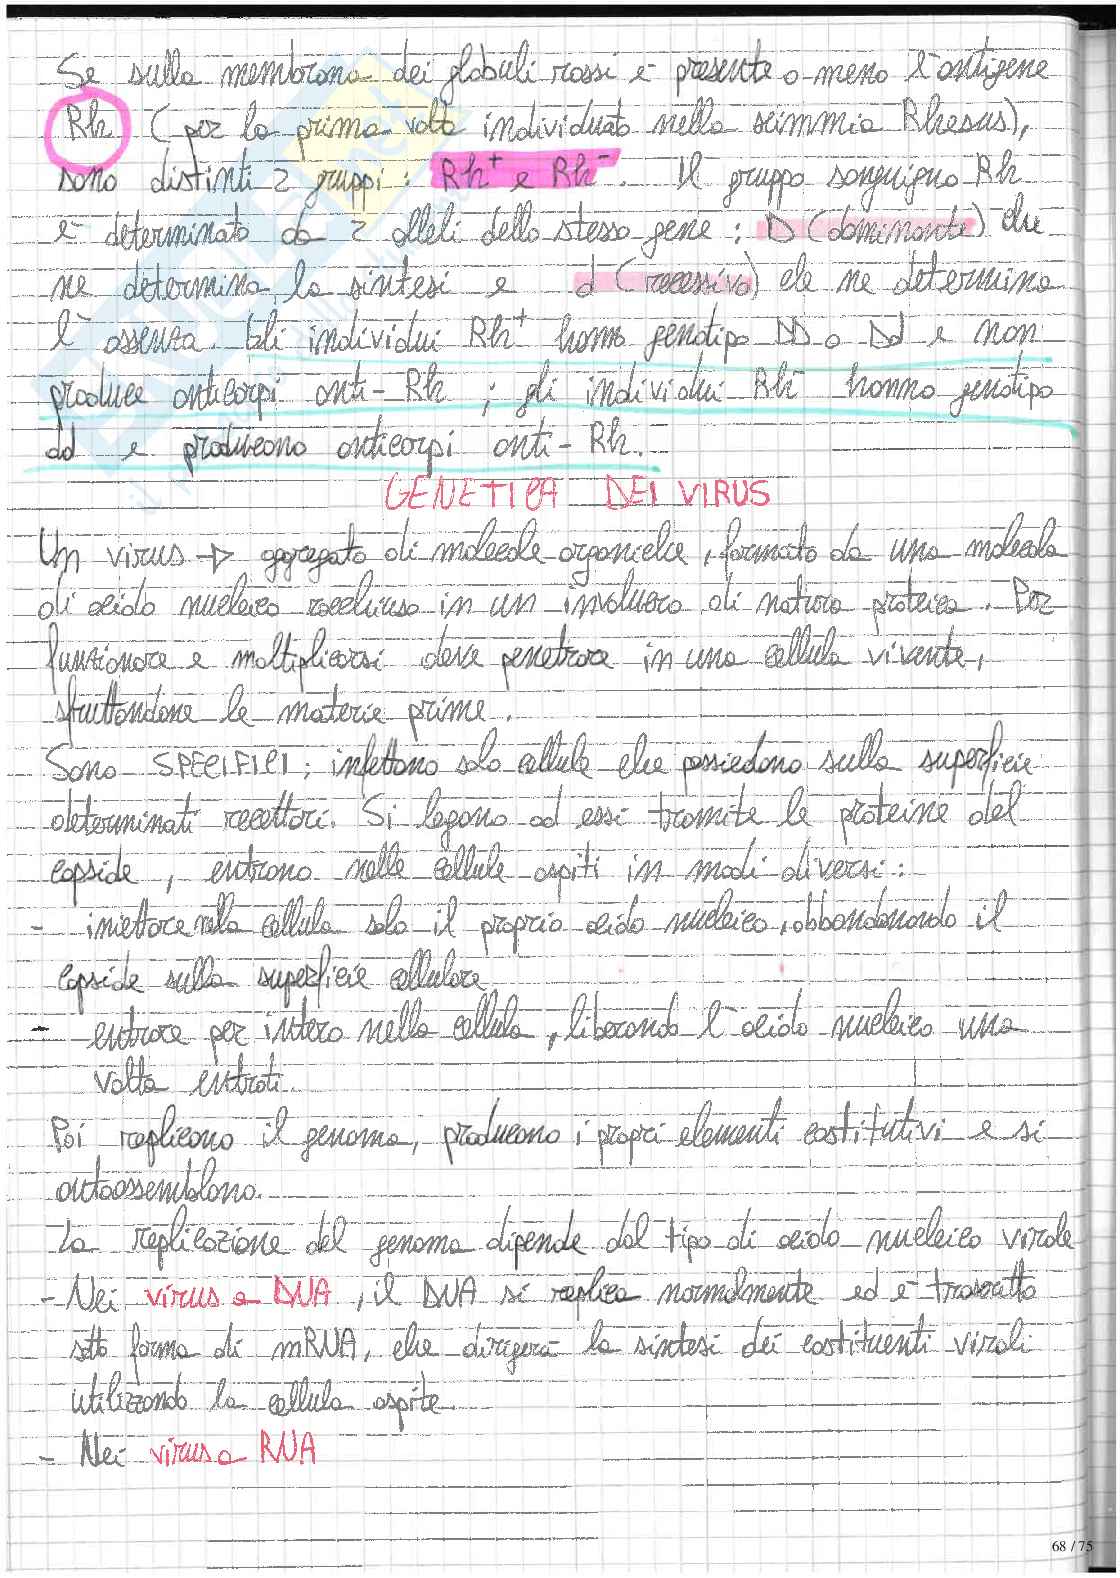 Se sulla membrana dei globuli rossi è presente o meno l'antigene
Rh (per la prima volta individuato nella scimmia Rhesus),
sono distinti 2 gruppi: Rh+ e Rh-. Il gruppo sanguigno Rh
è determinato da 2 alleli dello stesso gene: D (dominante) che
ne determina la sintesi e d (recessivo) che ne determina
l'assenza. Gli individui Rh+ hanno genotipo DD o Dd e non
produce anticorpi anti-Rh; gli individui Rh- hanno genotipo
dd e producono anticorpi anti-Rh.
GENETICA DEI VIRUS
Un virus → aggregato di molecole organiche, formato da una molecola
di acido nucleico racchiuso in un involucro di natura proteica. Per
funzionare e moltiplicarsi deve penetrare in una cellula vivente,
sfruttandone le materie prime.
Sono SPECIFICI: infettano solo cellule che possiedono sulla superficie
determinati recettori. Si legano ad essi tramite le proteine del
capside, entrano nelle cellule ospiti in modi diversi:
- iniettare nella cellula solo il proprio acido nucleico, abbandonando il
capside sulla superficie cellulare
- entrare per intero nella cellula, liberando l'acido nucleico una
volta entrati.
Poi replicano il genoma, producono i propri elementi costitutivi e si
autoassemblano.
La replicazione del genoma dipende dal tipo di acido nucleico virale
- Nei virus a DNA, il DNA si replica normalmente ed è trascritto
sotto forma di mRNA, che dirigerà la sintesi dei costituenti virali
utilizzando la cellula ospite.
- Nei virus a RNA
68 / 75